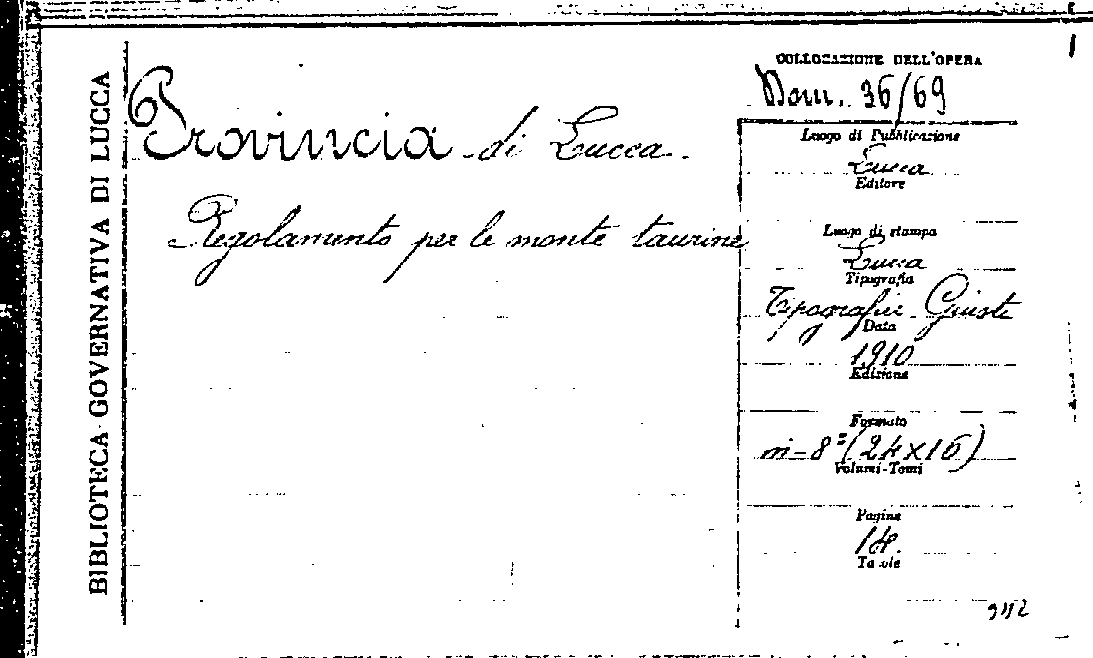 BIBLIOTECA GOVERNATIVA DI LUCCA
Provincia di Lucca.
Regolamento per le monte taurine
COLLOCAZIONE DELL'OPERA
Dom. 36/69
Luogo di Pubblicazione
Lucca
Editore
Luogo di stampa
Lucca
Tipografia
Tipografia Giusti
Data
1910
Edizione
Formato
in-8º (24x16)
Volumi-Tomi
Pagine
14.
Tavole